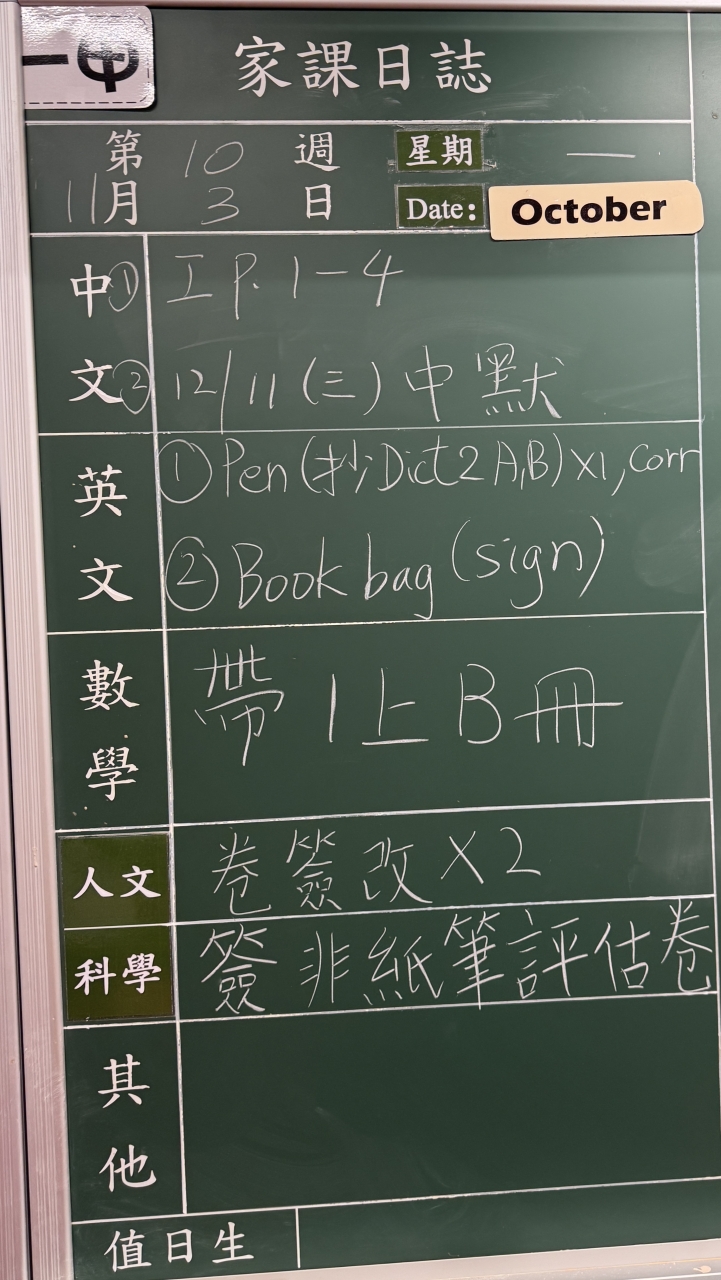 一甲
家課日誌
第 10 週 星期 一
11月 3 日 Date: October
中文 ① 工 P. 1-4
② 12/11 (三) 中默
英文 ① Pen (抄 Dict 2 A,B) x1, corr
② Book bag (sign)
數學 帶 1上 B 冊
人文 卷簽改 X2
科學 簽非紙筆評估卷
其他
值日生